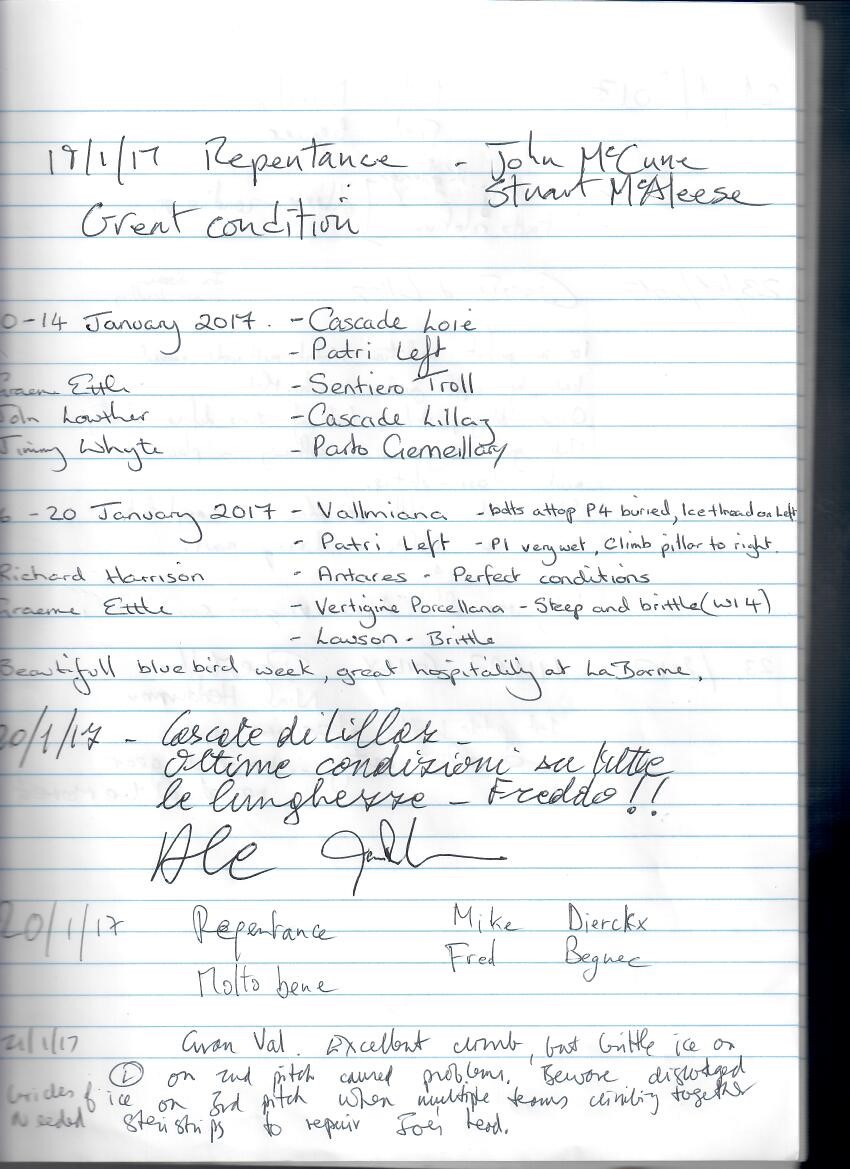 19/1/17 Repentance - John McCune
Stuart McAleese
Great condition
0-14 January 2017. - Cascade Loie
- Patri Left
Graeme Ettle - Sentiero Troll
John Lowther - Cascade Lillaz
Jimmy Whyte - Parto Gemellary
6 -20 January 2017 - Vallmiana - bolts at top P4 buried, Ice thread on left
- Patri Left - P1 very wet, Climb pillar to right.
Richard Harrison - Antares - Perfect conditions
Graeme Ettle - Vertigine Porcellana - Steep and brittle (WI4)
- Lawson - Brittle
Beautifull bluebird week, great hospitality at La Barme.
20/1/17 - Cascate di Lillaz -
Ottime condizioni su tutte
le lunghezze - Freddo!!
Ale
20/1/17 Repentance Mike Dierckx
Fred Begnec
Molto bene
21/1/17 Gran Val. Excellent climb, but brittle ice on
on 2nd pitch caused problems. Beware dislodged
ice on 3rd pitch when multiple teams climbing together
needed steristrips to repair Joe's head.